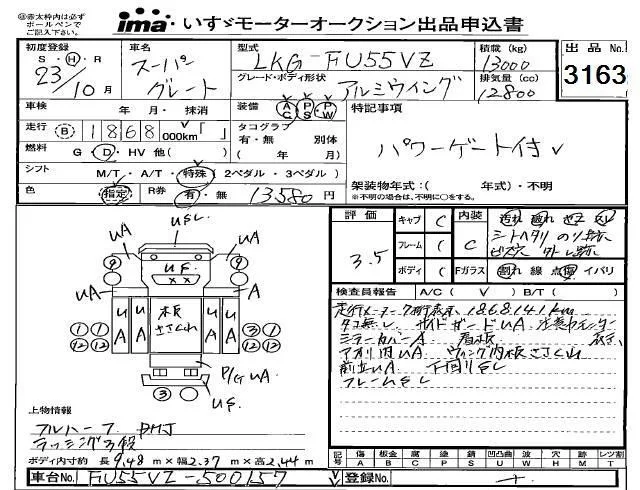 ㊟赤太枠内は必ず
ボールペンで
ご記入下さい。
ima いすゞモーターオークション出品申込書
初度登録
S・H・R
23/10月
車名
スーパー
グレート
型式
LKG-FU55VZ
グレード・ボディ形状
アルミウイング
積載 (kg)
13000
排気量 (cc)
12800
出品 No.
3163
車検 年・月・抹消
装備 AC PS PW
特記事項
走行 B 1868 000km「 」
タコグラフ
有・無 別体
( 年 月)
パワーゲート付
燃料 G・D・HV 他( )
シフト M/T・A/T・特殊 (2ペダル・3ペダル)
架装物年式:( 年式)・不明
※不明の場合は、不明に○をする。
色 指定 R券 有・無 13580 円
評価
3.5
キャブ C
フレーム C
ボディ C
内装 C
Fガラス 割れ 線 点傷 イバリ
検査員報告 A/C( V ) B/T( )
走行メーター 1868141km
タコ無し サイドガードUA
ミラーカバーA 看板
アオリ内UA ウィング内板ささくれ
前立UA 下回りSL
フレームSL
USL
UA UA
⑨ ⑨
UF
××
UA A
UA UA UA UA
板
ささくれ
① ① ③ ①
⑫ ⑫ ⑫ ⑫
P/G UA
③
US
上物情報
フルハーフ
ラッシング3段
ボディ内寸約 長 9.48 m×幅 2.37 m×高 2.44 m
記号 傷A 板金B 腐C 塗P 錆S 凹凸曲U 波W 穴H 欠M レツ割T
車台No. FU55VZ-500157
登録No.